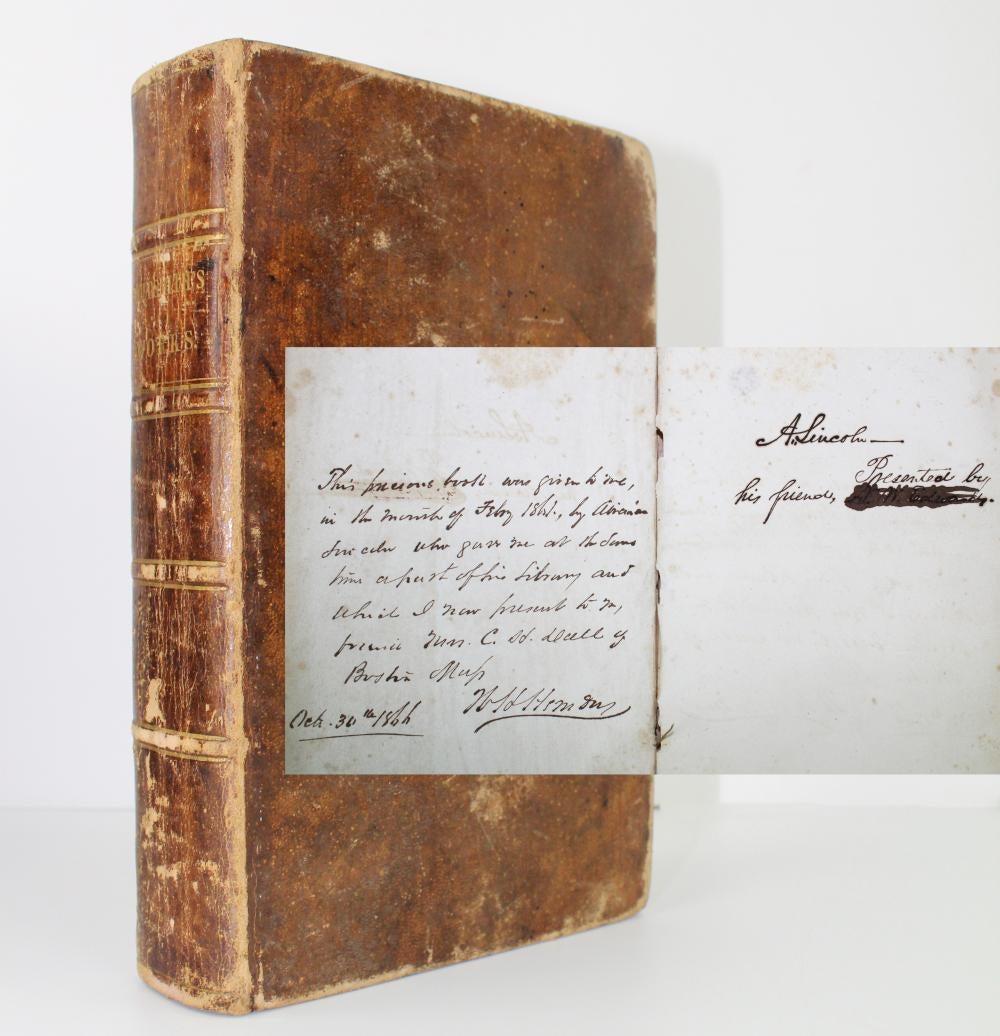 WORKS
This precious book was given to me,
in the month of Feby 1861, by Abraham
Lincoln who gave me at the same
time a part of his Library and
which I now present to my
friend Mrs. C. H. Dall of
Boston Mass
Oct. 30th 1866
WHHerndon
A. Lincoln—
Presented by
his friend,